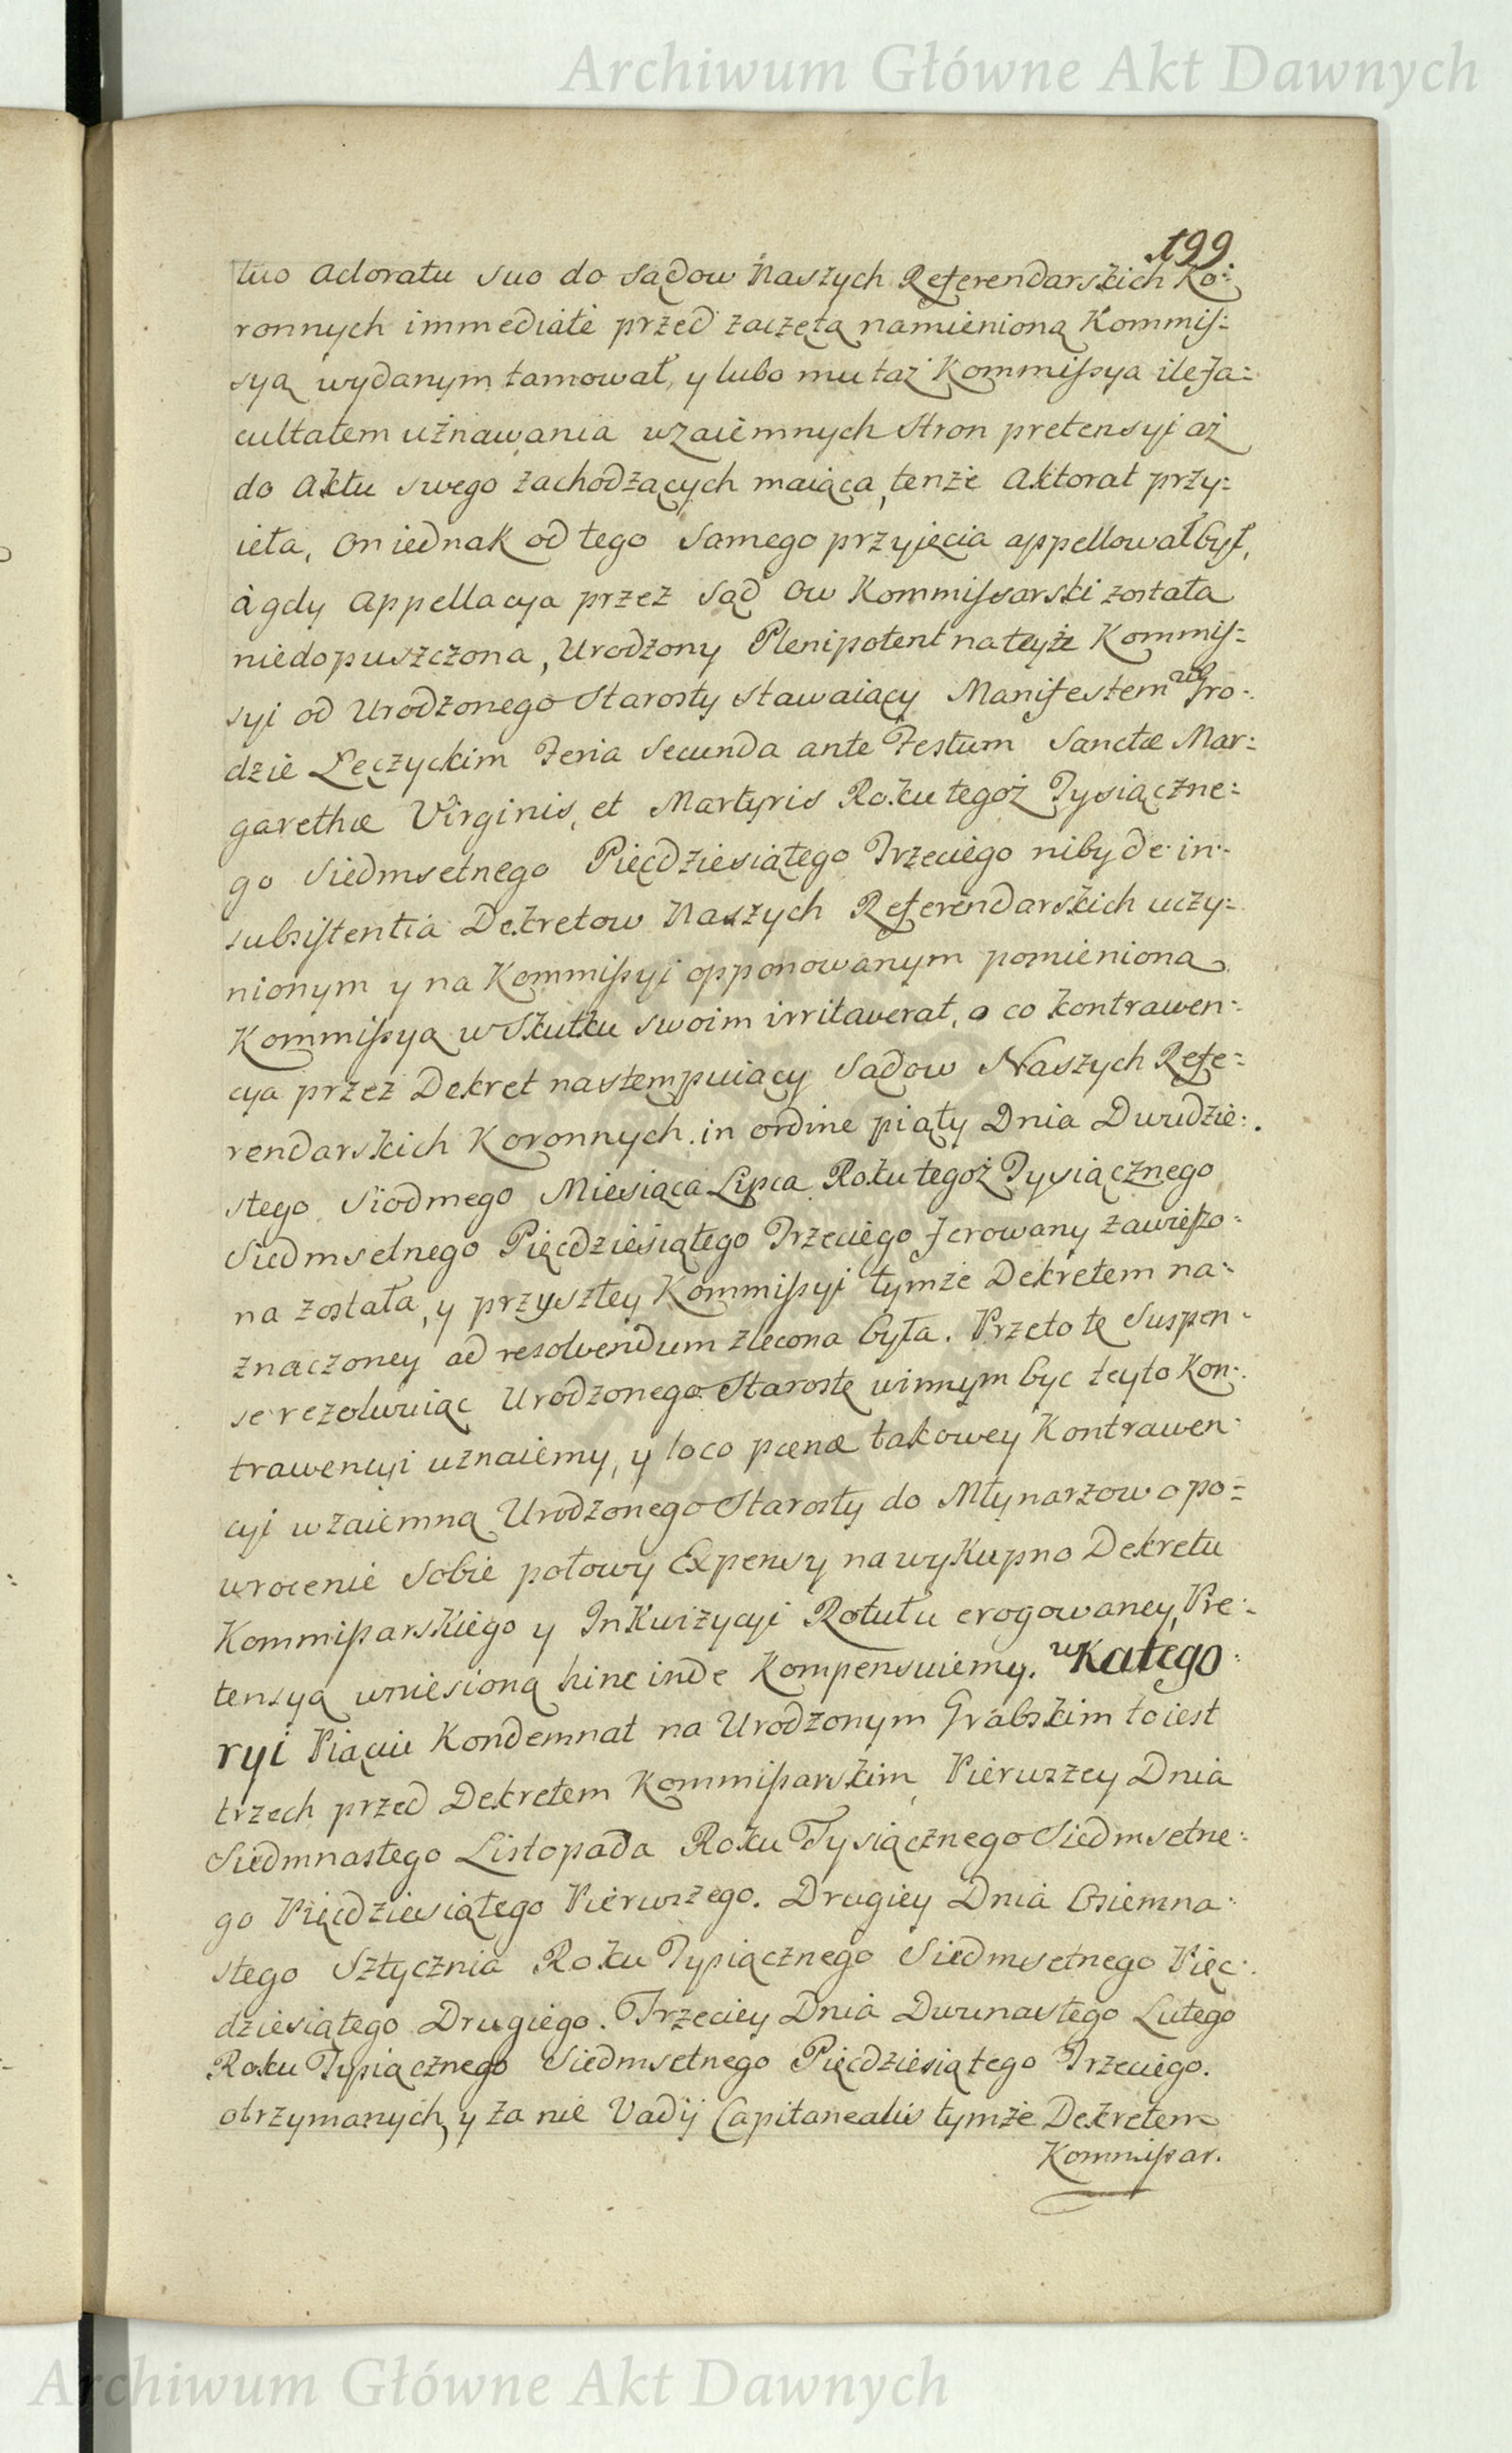 Archiwum Główne Akt Dawnych
199
tuo actoratu suo do sądow Naszych Referendarskich Ko:
ronnych immediatè przed zaczętą namienioną Kommis:
syą wydanym tamował, y lubo mu taż Kommissya ile fa:
cultatem uznawania wzaiemnych Stron pretensyi aż
do Aktu swego zachodzących maiąca, tenże Aktorat przy:
ieła, on iednak od tego samego przyjęcia appellował był,
à gdy Appellacya przez Sąd ow Kommissarski została
niedopuszczona, Urodzony Plenipotent na teyże Kommis:
syi od Urodzonego Starosty stawaiący Manifestem w Gro:
dzie Łęczyckim Feria Secunda ante Festum Sanctæ Mar:
garethæ Virginis, et Martyris Roku tegoż Tysiączne:
go Siedmsetnego Pięcdziesiątego Trzeciego niby de in:
subsistentia Dekretow Naszych Referendarskich uczy:
nionym y na Kommissyi opponowanym pomienioną
Kommissyą w Skutku swoim irritaverat, o co kontrawen:
cya przez Dekret nastempuiący Sądow Naszych Refe:
rendarskich Koronnych in ordine piąty Dnia Dwudzie:
stego Siodmego Miesiąca Lipca Roku tegoż Tysiącznego
Siedmsetnego Pięcdziesiątego Trzeciego ferowany zawieszo:
na została, y przyszłey Kommissyi tymże Dekretem na:
znaczoney ad resolvendum zlecona była. Przeto tę Suspen:
sę rezolwuiąc Urodzonego Starostę winnym byc teyto Kon:
trawencyi uznaiemy, y loco pœnæ takowey Kontrawen:
cyi wzaiemną Urodzonego Starosty do Młynarzow o po:
wrocenie sobie połowy Expensy na wykupno Dekretu
Kommissarskiego y Inkwizycyi Rotułu erogowaney, Pre:
tensyą wniesioną hinc inde Kompensuiemy. w Katego:
ryi Piąciu Kondemnat na Urodzonym Grabskim to iest
trzech przed Dekretem Kommissarskim, Pierwszey Dnia
Siedmnastego Listopada Roku Tysiącznego Siedmsetne:
go Pięcdziesiątego Pierwszego. Drugiey Dnia Osiemna:
stego Sztycznia Roku Tysiącznego Siedmsetnego Pięc:
dziesiątego Drugiego. Trzeciey Dnia Dwunastego Lutego
Roku Tysiącznego Siedmsetnego Pięcdziesiątego Trzeciego.
otrzymanych, y za nie Vadij Capitanealis tymże Dekretem
Kommissar.
Archiwum Główne Akt Dawnych